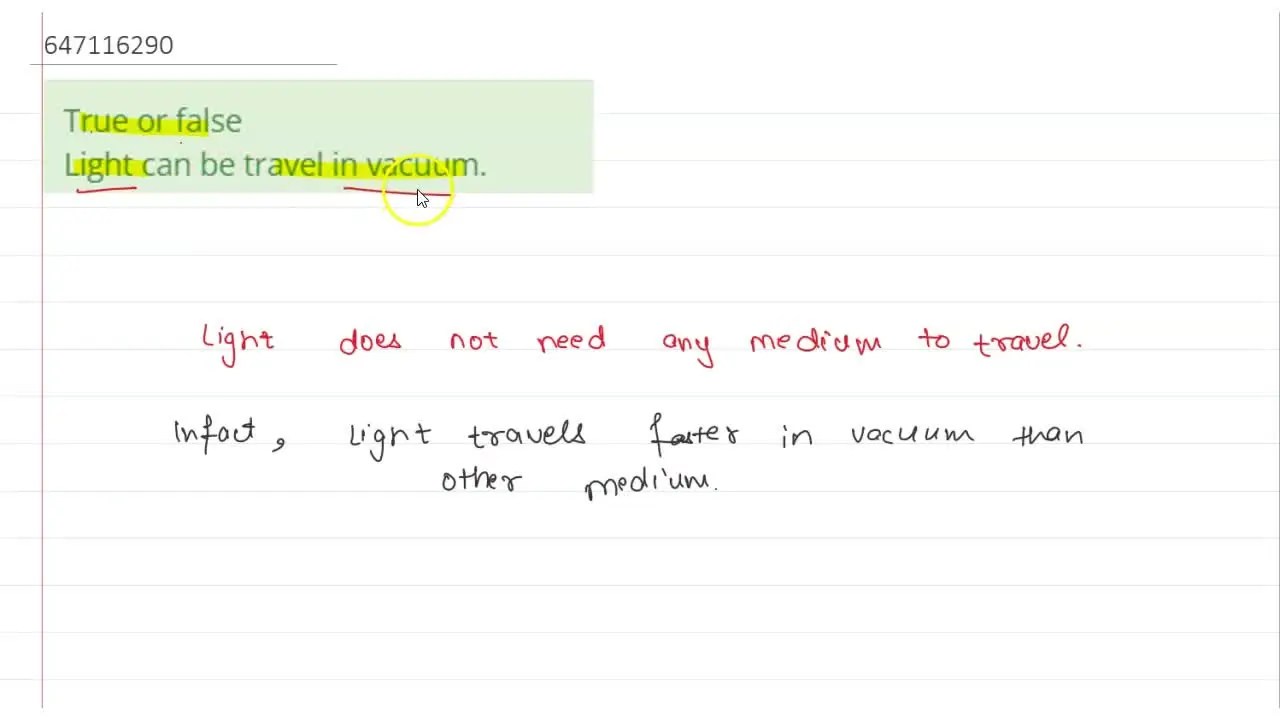 647116290
True or false
Light can be travel in vacuum.
Light does not need any medium to travel.
Infact, Light travels faster in vacuum than
other medium.